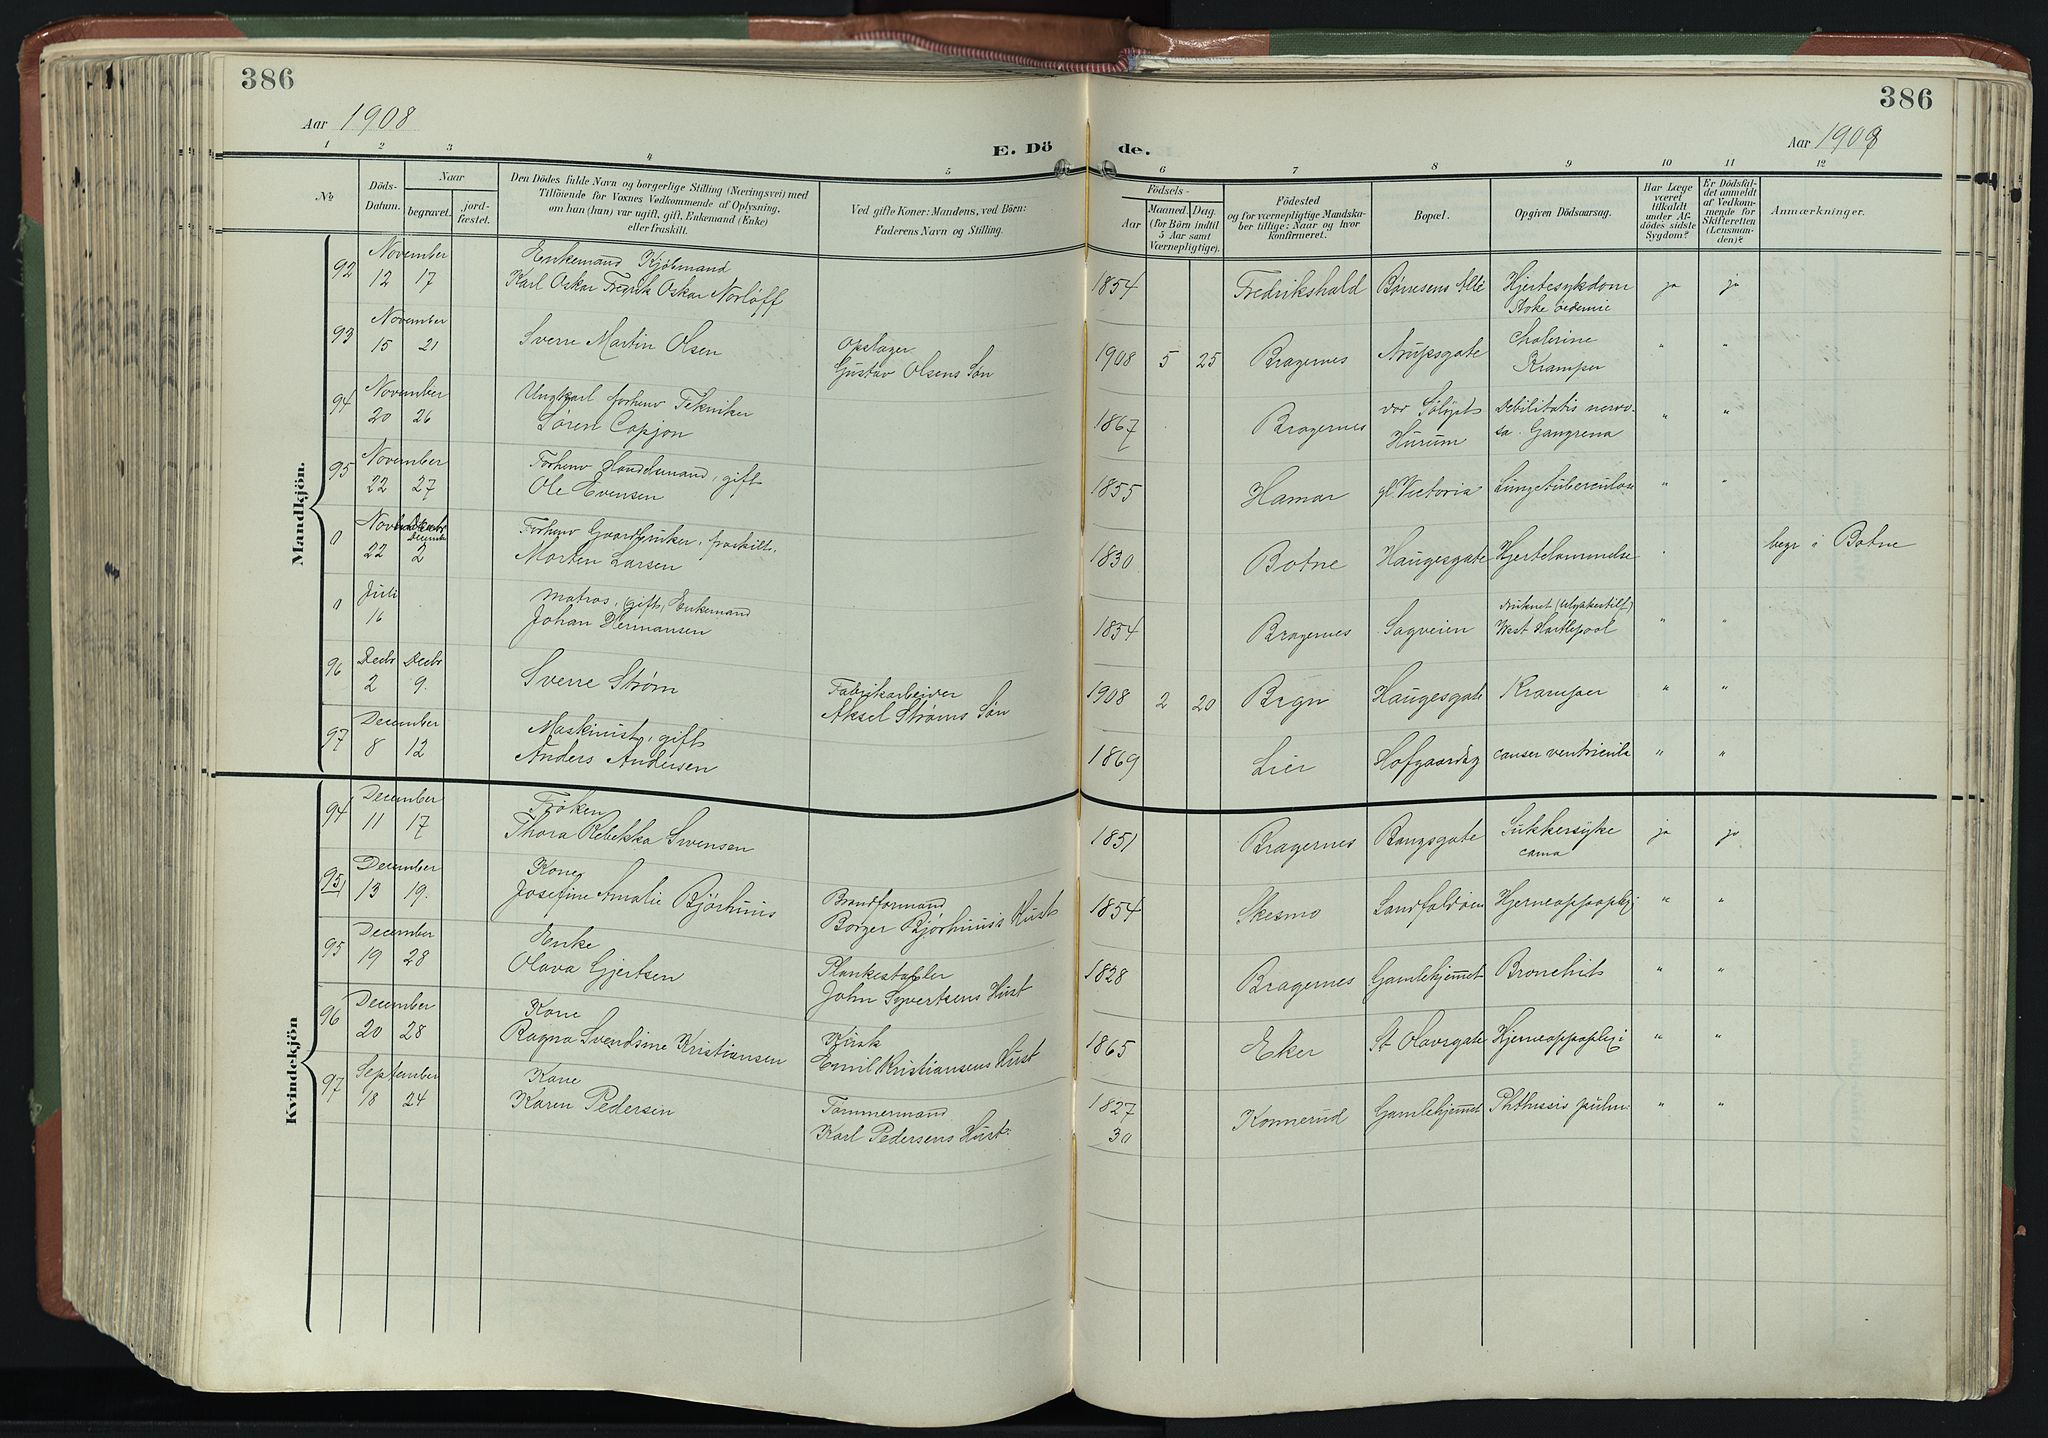 386
386
Aar 1908
Aar 1908
E. Dö
de.
1 2 3 4 5 6 7 8 9 10 11 12
No
Döds-Datum.
Naar
begravet.
jord-fæstet.
Den Dödes fulde Navn og borgerlige Stilling (Næringsvei) med
Tilföiende for Voxnes Vedkommende af Oplysning,
om han (hun) var ugift, gift, Enkemand (Enke)
eller fraskilt.
Ved gifte Koner: Mandens, ved Börn:
Faderens Navn og Stilling.
Födsels-
Aar
Maaned. Dag.
(for Börn indtil
5 Aar samt
Værnepligtige).
Födested
og for værnepligtige Mandska-
ber tillige: Naar og hvor
konfirmeret.
Bopæl.
Opgiven Dödsaarsag.
Har Læge
været
tilkaldt
under Af-
dödes sidste
Sygdom?
Er Dödsfal-
det anmeldt
af Vedkom-
mende for
Skifteretten
(Lensman-
den)?
Anmærkninger.
Mandkjön.
92 November Enkemand Kjøbmand
12 17 Karl Oskar Fredrik Oskar Norløff 1854 Fredrikshald Børresens Allé Hjertesykdom ja ja
93 November
15 21 Sverre Martin Olsen Opslager
Gustav Olsens Søn 1908 5 25 Bragernes Arupsgate Cholerine " "
Kramper
94 November Ungkarl forhenv Tekniker
20 26 Søren Capjon 1867 Bragernes Hurum Debilitatis nervo- " "
sa. Gangrena
95 November Forhenv Handelsmand, gift
22 27 Ole Evensen 1855 Hamar gl. Victoria Lungetuberculose " "
0 December
22 2 Forhenv Gaardbruker, fraskilt,
Morten Larsen 1830 Botne Haugesgate Hjertelammelse " begr i Botne
0 Juli Matros, (gift) Enkemand
16 Johan Hermansen 1854 Bragernes Sagveien druknet (Ulykkestilf) " "
West Hartlepool
96 Decbr Decbr
2 9. Sverre Strøm Fabrikarbeider
Aksel Strøms Søn 1908 2 20 Brgn Haugesgate Kramper " "
97 December Maskinist, gift
8 12 Anders Andersen 1869 Lier Hofgaardsg canser ventricula " "
Kvindekjön
94 December Frøken
11 17 Thora Rebekka Svensen 1851 Bragernes Baugsgate Sukkersyke ja ja
coma
95 December Kone
13 19. Josefine Amalie Bjørhuus Brandformand
Borger Bjørhuus's Hust 1854 Skesmo Landfaldøen Hjerneappoplexi " "
95 December Enke
19 28 Olava Gjertsen Plankestabler
John Syvertsens Hust 1828 Bragernes Gamlehjemmet Bronchit " "
96 December Kone
20 28 Ragna Svendsine Kristiansen Kusk
Emil Kristiansens Hust 1865 Eker St Olavsgate Hjerneappoplexi " "
97 September Kone
18 24 Karen Pedersen Tømmermand
Karl Pedersens Hust 1827 Konnerud Gamlehjemmet Phthissis pulm: " "
30